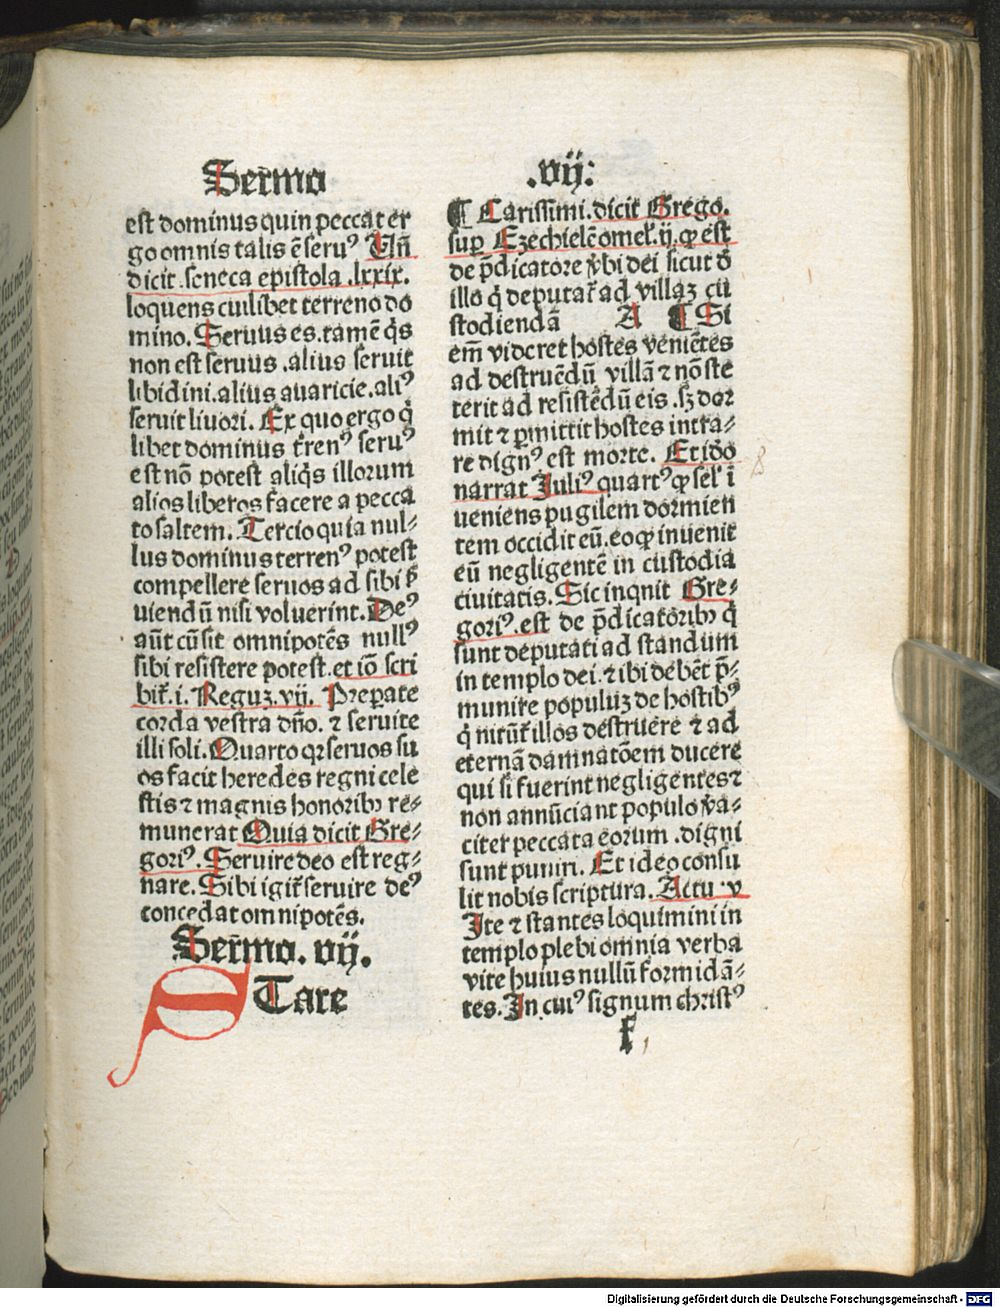 Sermo
est dominus quin peccat er
go omnis talis ē seruꝰ Un̄
dicit .seneca epistola .lxxix.
loquens cuilibet terreno do
mino. Seruus es. tamē q̇s
non est seruus .alius seruit
libidini. alius auaricie. aliꝰ
seruit liuori. Ex quo ergo q̇
libet dominus t̄renꝰ seruꝰ
est nō potest aliq̇s illorum
alios liberos facere a pecca
to saltem. Tercio quia nul⸗
lus dominus terrenꝰ potest
compellere seruos ad sibi s̄
uiendū nisi voluerint. Deꝰ
aūt cū sit omnipotēs nullꝰ
sibi resistere potest. et iō scri
bit̄. i. Reguꝫ. vij. Preparate
corda vestra dn̄o. ⁊ seruite
illi soli. Quarto qꝛ seruos su
os facit heredes regni cele
stis ⁊ magnis honoribꝰ re⸗
munerat Quia dicit Gre⸗
goriꝰ. Seruire deo est reg⸗
nare. Sibi igit̄ seruire deꝰ
concedat omnipotēs.
Sermo. vij.
STare
.vij:
¶ Carissimi. dicit Grego.
suꝑ Ezechielē omel̄. ij. ꝙ est
de p̄dicatore v̄bi dei sicut d̄
illo q̇ deputat̄ ad villaꝫ cu
stodiendā A ¶ Si
em̄ videret hostes veniētes
ad destruēdū villā ⁊ nō ste
terit ad resistēdū eis .sꝫ dor
mit ⁊ ꝑmittit hostes intra⸗
re dignꝰ est morte. Et idō
narrat Juliꝰ quartꝰ ꝙ sel̄ ī
ueniens pugilem dormien
tem occidit eū. eo ꝙ inuenit
eū negligentē in custodia
ciuitatis. Sic inquit Gre⸗
goriꝰ .est de p̄dicatoribꝰ q̇
sunt deputati ad standum
in templo dei. ⁊ ibi debēt p̄⸗
munire populuꝫ de hostibꝰ
q̇ nitūt̄ illos destruere ⁊ ad
eternā damnatōem ducere
qui si fuerint negligentes ⁊
non annūciant populo v̄a⸗
citer peccata eorum .digni
sunt puniri. Et ideo consu
lit nobis scriptura. Actu. v
Ite ⁊ stantes loquimini in
templo plebi omnia verba
vite huius nullū formidā⸗
tes. In cuiꝰ signum christꝰ
f
Digitalisierung gefördert durch die Deutsche Forschungsgemeinschaft - DFG